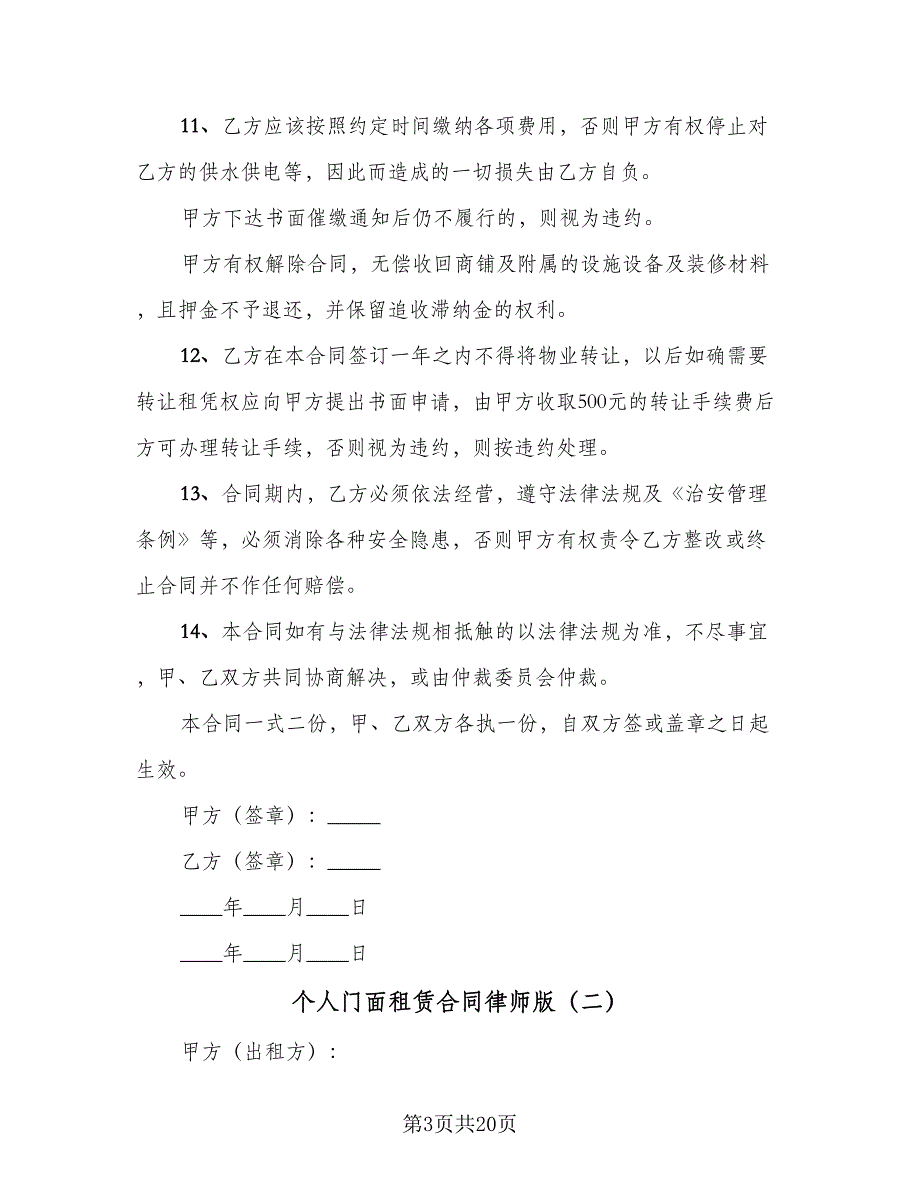 11、乙方应该按照约定时间缴纳各项费用，否则甲方有权停止对
乙方的供水供电等，因此而造成的一切损失由乙方自负。
甲方下达书面催缴通知后仍不履行的，则视为违约。
甲方有权解除合同，无偿收回商铺及附属的设施设备及装修材料
，且押金不予退还，并保留追收滞纳金的权利。
12、乙方在本合同签订一年之内不得将物业转让，以后如确需要
转让租凭权应向甲方提出书面申请，由甲方收取500元的转让手续费后
方可办理转让手续，否则视为违约，则按违约处理。
13、合同期内，乙方必须依法经营，遵守法律法规及《治安管理
条例》等，必须消除各种安全隐患，否则甲方有权责令乙方整改或终
止合同并不作任何赔偿。
14、本合同如有与法律法规相抵触的以法律法规为准，不尽事宜
，甲、乙双方共同协商解决，或由仲裁委员会仲裁。
本合同一式二份，甲、乙双方各执一份，自双方签或盖章之日起
生效。
甲方（签章）：_____
乙方（签章）：_____
____年____月____日
____年____月____日
个人门面租赁合同律师版（二）
甲方（出租方）：
第3页共20页